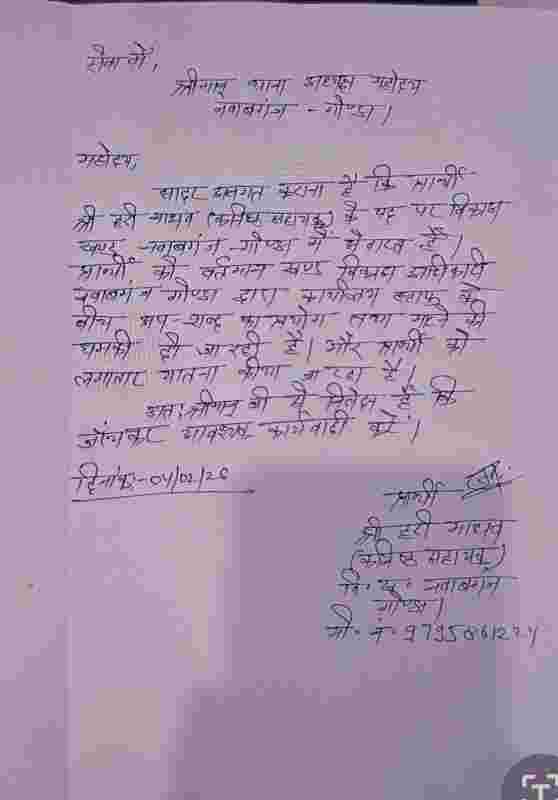 सेवा में,
श्रीमान् थाना अध्यक्ष महोदय
नवाबगंज - गोण्डा।
महोदय,
सादर अवगत कराना है कि प्रार्थी
श्री हरी यादव (कनिष्ठ सहायक) के पद पर विकास
खण्ड नवाबगंज - गोण्डा में सेवारत है।
प्रार्थी को वर्तमान खण्ड विकास अधिकारी
नवाबगंज गोण्डा द्वारा कार्यालय स्टाफ के
बीच अप-शब्द का प्रयोग तथा मारने की
धमकी दी जा रही है। और प्रार्थी को
लगातार यातना दिया जा रहा है।
अतः श्रीमान् जी से निवेदन है कि
जाँचकर आवश्यक कार्यवाही करें।
दिनांक:- 04/02/26
प्रार्थी
श्री हरी यादव
(कनिष्ठ सहायक)
वि० ख० नवाबगंज
गोण्डा।
मो० नं०